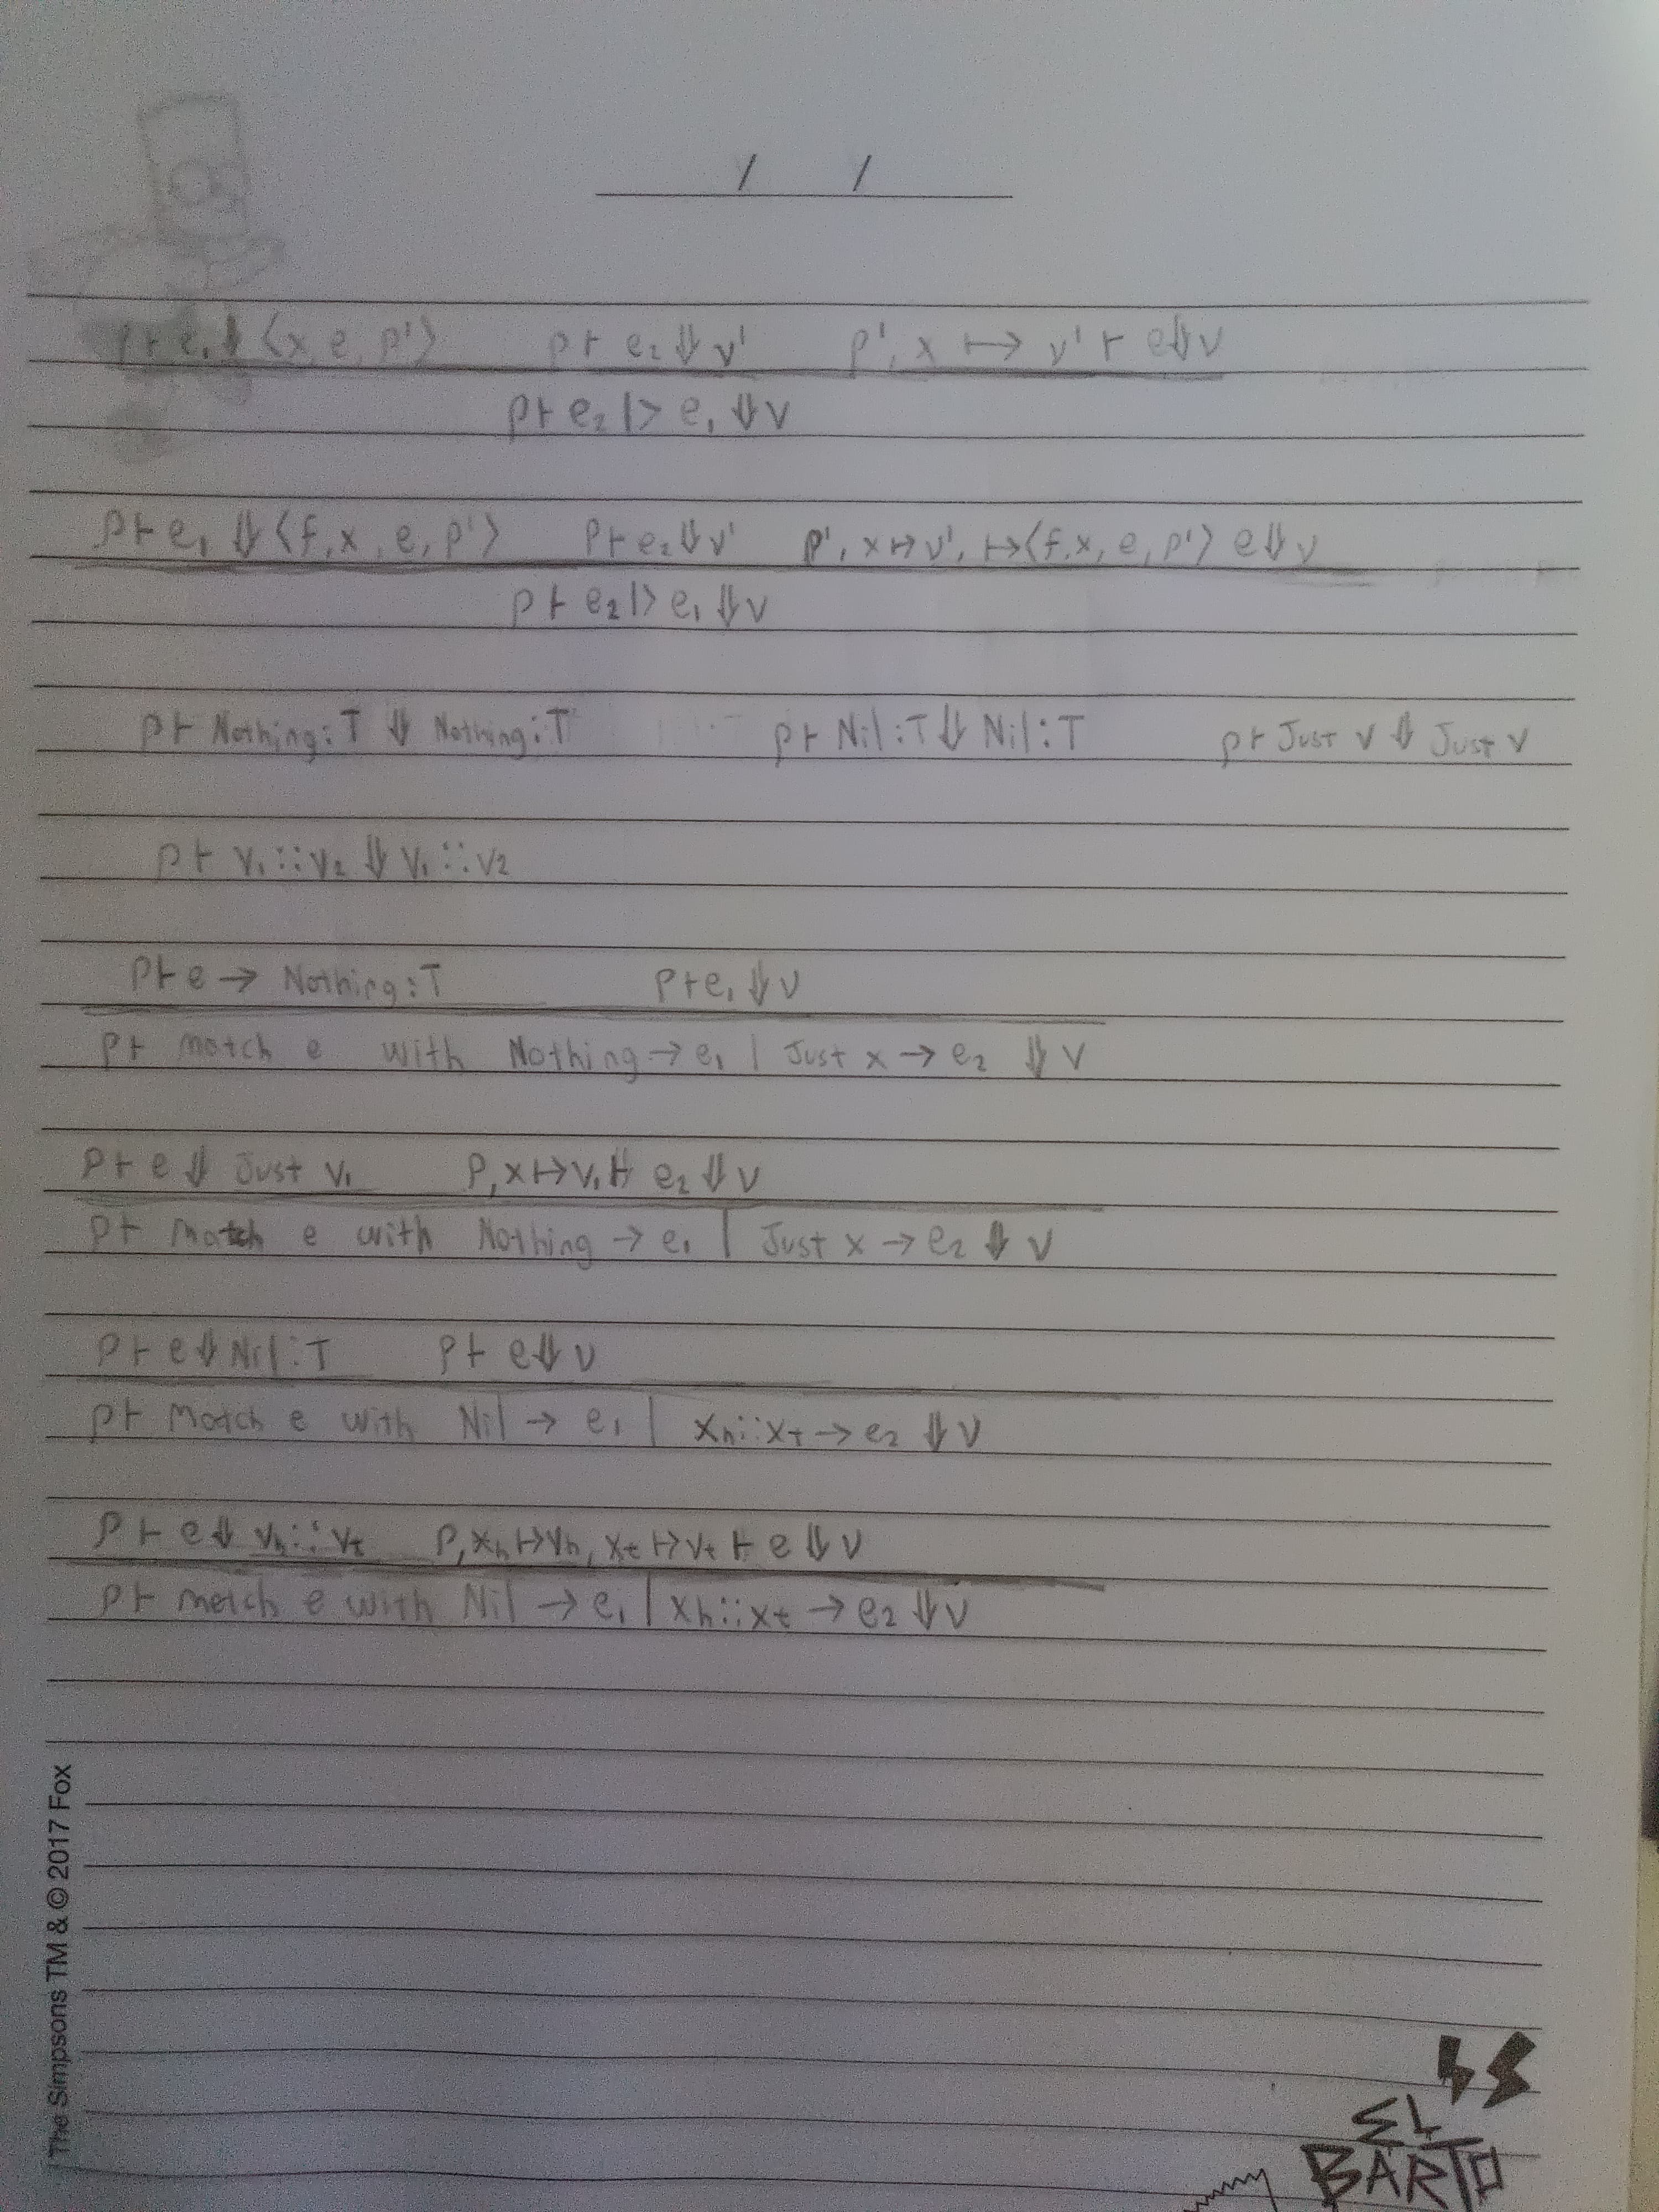 / /
ρ ⊢ e₁ ⇓ ⟨x, e, ρ'⟩ ρ ⊢ e₂ ⇓ v' ρ', x ↦ v' ⊢ e ⇓ v
ρ ⊢ e₂ |> e₁ ⇓ v
ρ ⊢ e₁ ⇓ ⟨f, x, e, ρ'⟩ ρ ⊢ e₂ ⇓ v' ρ', x ↦ v', ↦ ⟨f, x, e, ρ'⟩ e ⇓ v
ρ ⊢ e₂ |> e₁ ⇓ v
ρ ⊢ Nothing : T ⇓ Nothing : T ρ ⊢ Nil : T ⇓ Nil : T ρ ⊢ Just v ⇓ Just v
ρ ⊢ v₁ :: v₂ ⇓ v₁ :: v₂
ρ ⊢ e → Nothing : T ρ ⊢ e₁ ⇓ v
ρ ⊢ match e with Nothing → e₁ | Just x → e₂ ⇓ v
ρ ⊢ e ⇓ Just v₁ ρ, x ↦ v₁ ⊢ e₂ ⇓ v
ρ ⊢ match e with Nothing → e₁ | Just x → e₂ ⇓ v
ρ ⊢ e ⇓ Nil : T ρ ⊢ e ⇓ v
ρ ⊢ Match e with Nil → e₁ | xₕ :: xₜ → e₂ ⇓ v
ρ ⊢ e ⇓ vₕ :: vₜ ρ, xₕ ↦ vₕ, xₜ ↦ vₜ ⊢ e ⇓ v
ρ ⊢ match e with Nil → e₁ | xₕ :: xₜ → e₂ ⇓ v
The Simpsons TM & © 2017 Fox
EL
BARTO